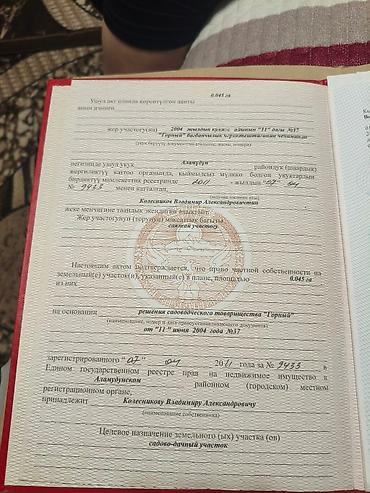 0.045 га
Ушул акт планда көрсөтүлгөн аянты
анын ичинен
жер участогу(на) 2004 жылдын кулжа айынын "11" дагы №37
"Горный" багбанчылык
негизинде улуу укук Аламүдүн райондук (шаардык)
жергиликтүү каттоо органында, кыймылсыз мүлккө болгон укуктардын
бирдиктүү мамлекеттик реестринде 2011 - жылдын "07" 04
№ 9433 менен катталган,
Колесников Владимир Александровичтин
жеке менчигине таандык экендигин
Жер участогунун (торунун) максаттуу багыты
бакчылык участогу
Настоящим актом подтверждается, что право частной собственности на
земельный(е) участок(и), указанный(е) в плане, площадью 0.045 га
из них
на основании решения садоводческого товарищества "Горный"
(наименование, номер и дата правоустанавливающего документа)
от "11" июня 2004 года №37
зарегистрированного "07" 04 2011 года за № 9433 в
Едином государственном реестре прав на недвижимое имущество в
Аламудунском районном (городском) местном
регистрационном органе,
принадлежит Колесникову Владимиру Александровичу
(наименование собственника)
Целевое назначение земельного (ых) участка (ов)
садово-дачный участок